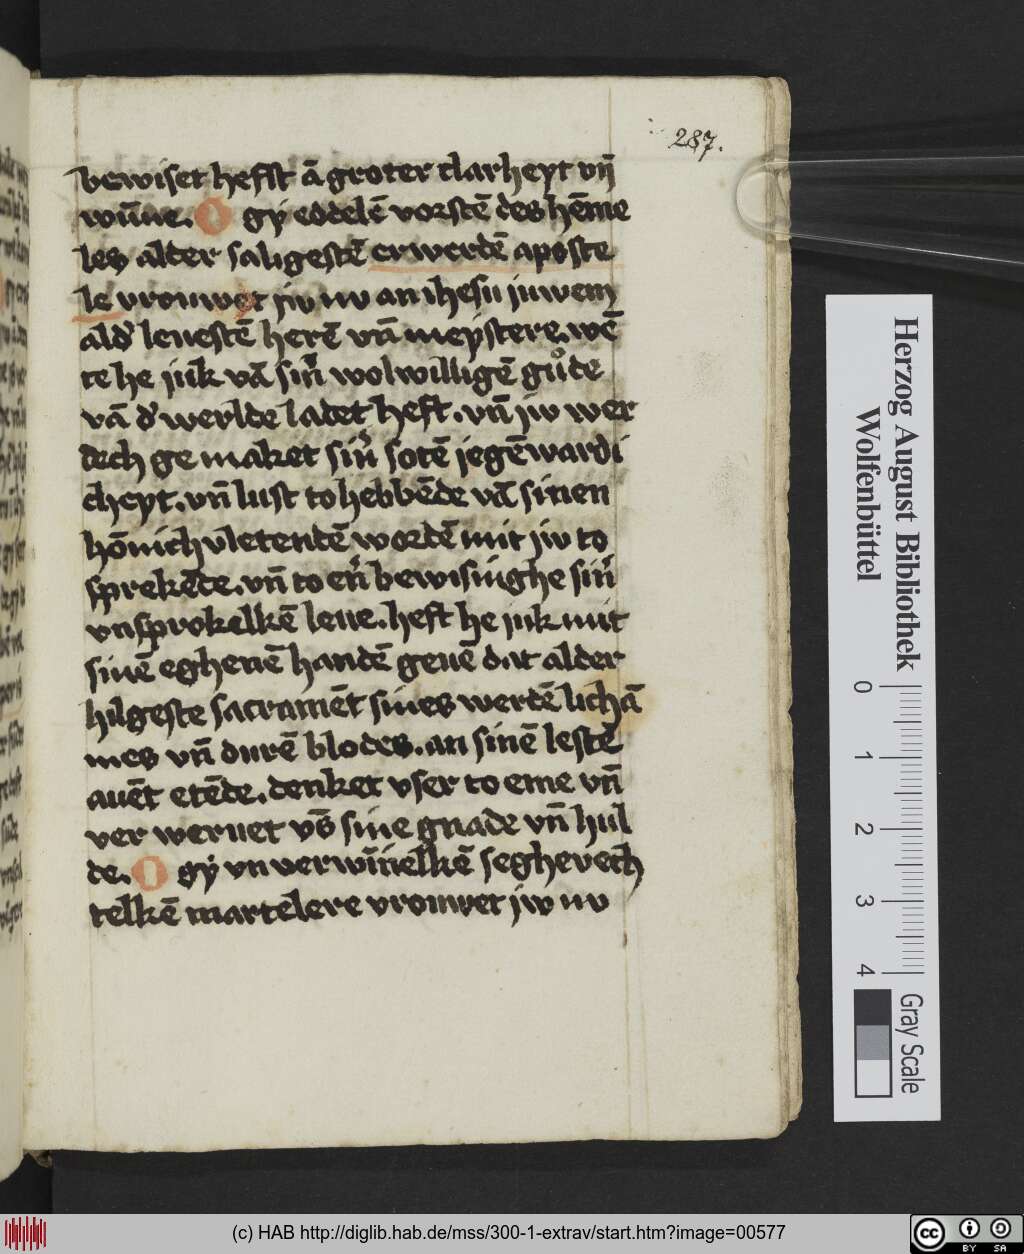 287.
bewiset hefft ā groter clarheyt vn̄
wūne. O gẏ eddelē vorstē des hēme
les alder saligestē erwerdē aposte
le vrouwet jw nv an ihesu juwem
ald' leuestē herē vn̄ meẏstere. wē
te he juk vā sin̄ wolwilligē gůde
vā d' werlde ladet heft. vn̄ jw wer
dich ge maket sin̄ sotē jegēwardi
cheyt. vn̄ lust to hebbēde vā sinen
hōnich vletendē wordē mit jw to
sprekēde. vn̄ to en̄ bewisinghe sin̄
vnsprokelkē leue. heft he juk mit
sinē eghenē handē geuē dat alder
hilgeste sacramēt sines werdē lichā
mes vn̄ durē blodes. an sinē lestē
auēt etēde. denket vser to eme vn̄
ver weruet vs̄ sine gnade vn̄ hul
de. O gẏ vn verwīnelkē seghevech
telkē martelere vrouwet jw nv
Herzog August Bibliothek
Wolfenbüttel
0 1 2 3 4
Gray Scale
(c) HAB http://diglib.hab.de/mss/300-1-extrav/start.htm?image=00577
cc BY SA